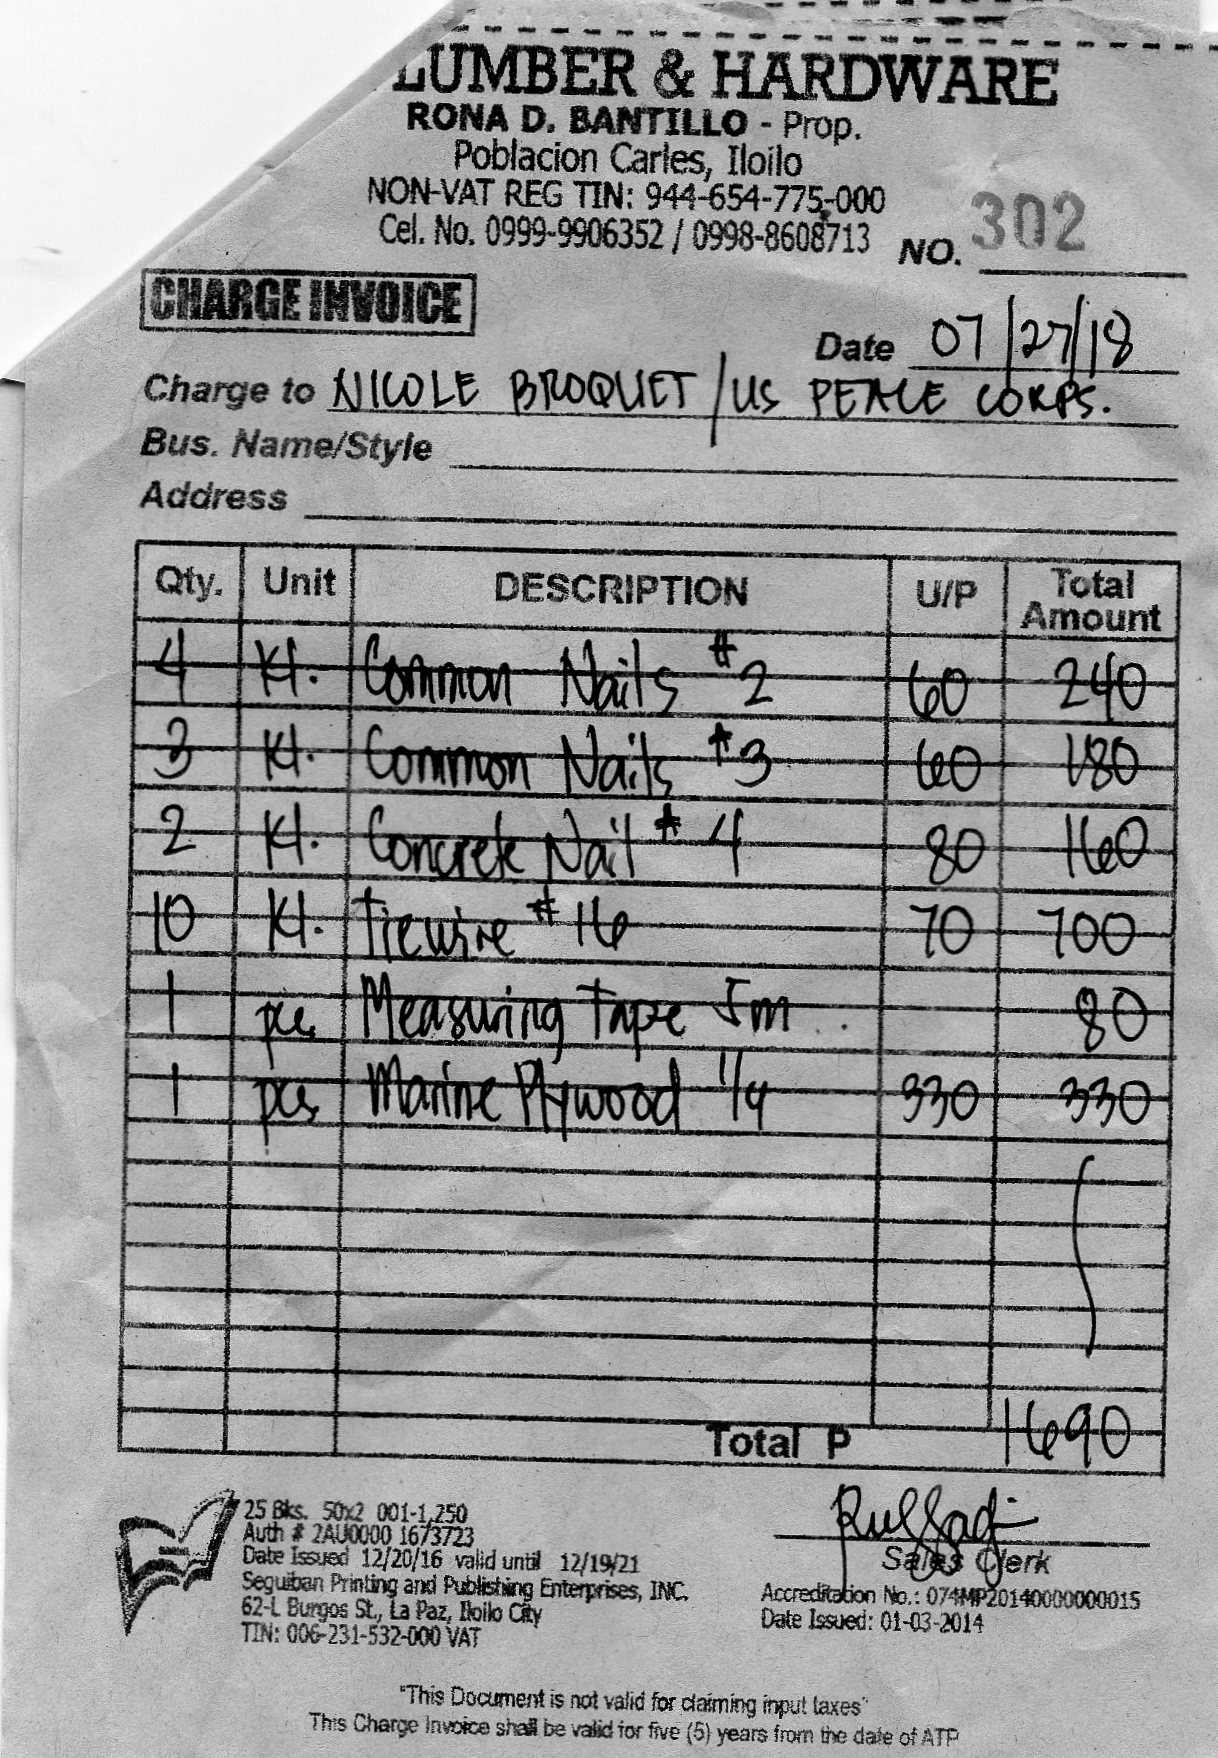 LUMBER & HARDWARE
RONA D. BANTILLO - Prop.
Poblacion Carles, Iloilo
NON-VAT REG TIN: 944-654-775-000
Cel. No. 0999-9906352 / 0998-8608713
NO. 302
CHARGE INVOICE
Date 07/27/18
Charge to NICOLE BROQUET / US PEACE CORPS.
Bus. Name/Style
Address
Qty. Unit DESCRIPTION U/P Total Amount
4 Kl. Common Nails #2 60 240
3 Kl. Common Nails #3 60 180
2 Kl. Concrete Nail #4 80 160
10 Kl. Tiewire #16 70 700
1 pcs Measuring Tape 5m 80
1 pcs Marine Plywood 1/4 330 330
Total P 1690
25 Bks. 50x2 001-1,250
Auth # 2AU0000 1673723
Date Issued 12/20/16 valid until 12/19/21
Seguiban Printing and Publishing Enterprises, INC.
62-L Burgos St., La Paz, Iloilo City
TIN: 006-231-532-000 VAT
Sales Clerk
Accreditation No.: 074MP20140000000015
Date Issued: 01-03-2014
"This Document is not valid for claiming input taxes"
This Charge Invoice shall be valid for five (5) years from the date of ATP